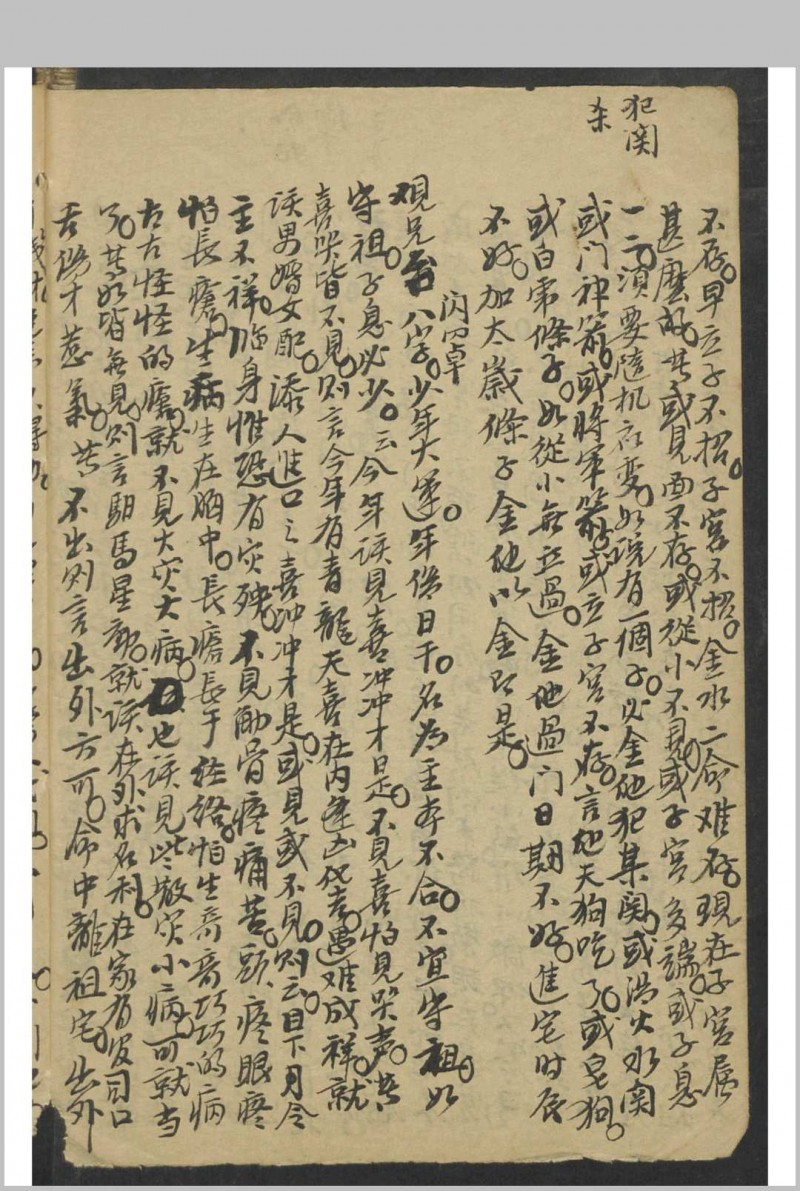 犯関
杀
不存。早立子不招。子宫不招。金水二命难存。現在子宫屬
甚麼的。其或見面不存。或從小不見。或子宫多端。或子息
一二。須要隨机应变。如説有一個子。必金他犯某関。或湯火水関
或门神箭。或將軍箭。或立子宫不存。言他天狗吃了。或皂狗。
或白帝條子。如從小無立過。金他過门日期不好。進宅时辰
不好。加太歲條子金他以金口是。
闪四卓
观兄台八字。少年大運。年傷日干。名为主本不合。不宜守祖。如
守祖。子息必少。云今年該見喜冲冲才是。不見喜怕見哭声。其
喜哭皆不見。则言今年有青龍天喜在内逢凶化吉。遇难成祥。就
該男婚女配。添人進口之喜冲冲才是。或見或不見。则云目下月令
主不祥。临身惟恐有灾殃。不見觔骨疼痛苦。頭疼眼疼
怕長瘡。生病生在胸中。長瘡長于经络。怕生奇奇巧巧的病
古古怪怪的瘡。就不見大灾大病。也該見些散灾小病。可就当
了。其如皆無見。则言馹馬星動。就該在外求名利。在家有役司口
舌傷才惹氣。其不出则言出外方可。命中離祖宅。出外